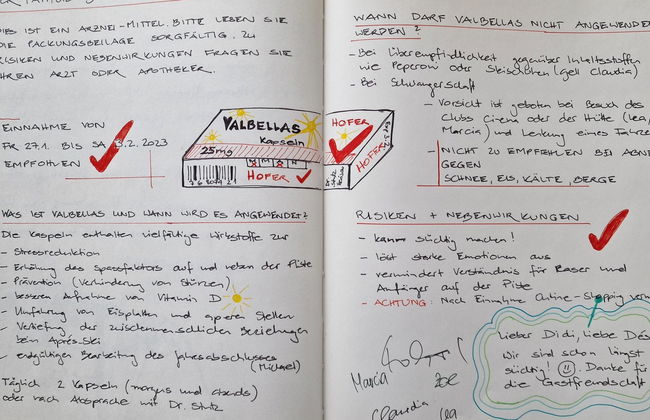 DIES IST EIN ARZNEI-MITTEL. BITTE LESEN SIE
DIE PACKUNGSBEILAGE SORGFÄLTIG. ZU
RISIKEN UND NEBENWIRKUNGEN FRAGEN SIE
IHREN ARZT ODER APOTHEKER.
EINNAHME VON
FR 27.1. BIS SA 2.2023
EMPFOHLEN
VALBELLAS
Kapseln
25mg
HOFER
HOFER
HOFER
WAS IST VALBELLAS UND WANN WIRD ES ANGEWENDET?
Die Kapseln enthalten vielfältige Wirkstoffe zur
- Stressreduktion
- Erhöhung des Spassfaktors auf und neben der Piste
- Prävention (Verhinderung von Stürzen)
- besseren Aufnahme von Vitamin D
- Umfahrung von Eisplatten und aperen Stellen
- Vertiefung der zwischenmenschlichen Beziehungen
beim Après-Ski
- endgültigen Bearbeitung des Jahresabschlusses
(Michael)
Täglich 2 Kapseln (morgens und abends)
oder nach Absprache mit Dr. Stutz
WANN DARF VALBELLAS NICHT ANGEWENDET
WERDEN?
- Bei Überempfindlichkeit gegenüber Inhaltsstoffen
wie Peperoni oder Fleischchäsli (gell Claudia)
- Bei Schwangerschaft
- Vorsicht ist geboten bei Besuch des
Clubs Cinema oder der Hütte (Lea,
Marcia) und Lenkung eines Fahrze
- NICHT ZU EMPFEHLEN BEI ABNE
GEGEN
SCHNEE, EIS, KÄLTE, BERGE
RISIKIEN + NEBENWIRKUNGEN
- kann süchtig machen!
- löst starke Emotionen aus
- vermindert Verständnis für Raser und
Anfänger auf der Piste
- ACHTUNG: Nach Einnahme Online-Shopping verm
Lieber Didi, liebe Dés
Wir sind schon längst
süchtig! Danke für
die Gastfreundschaft
Marcia
Zoe
Claudia
Lea